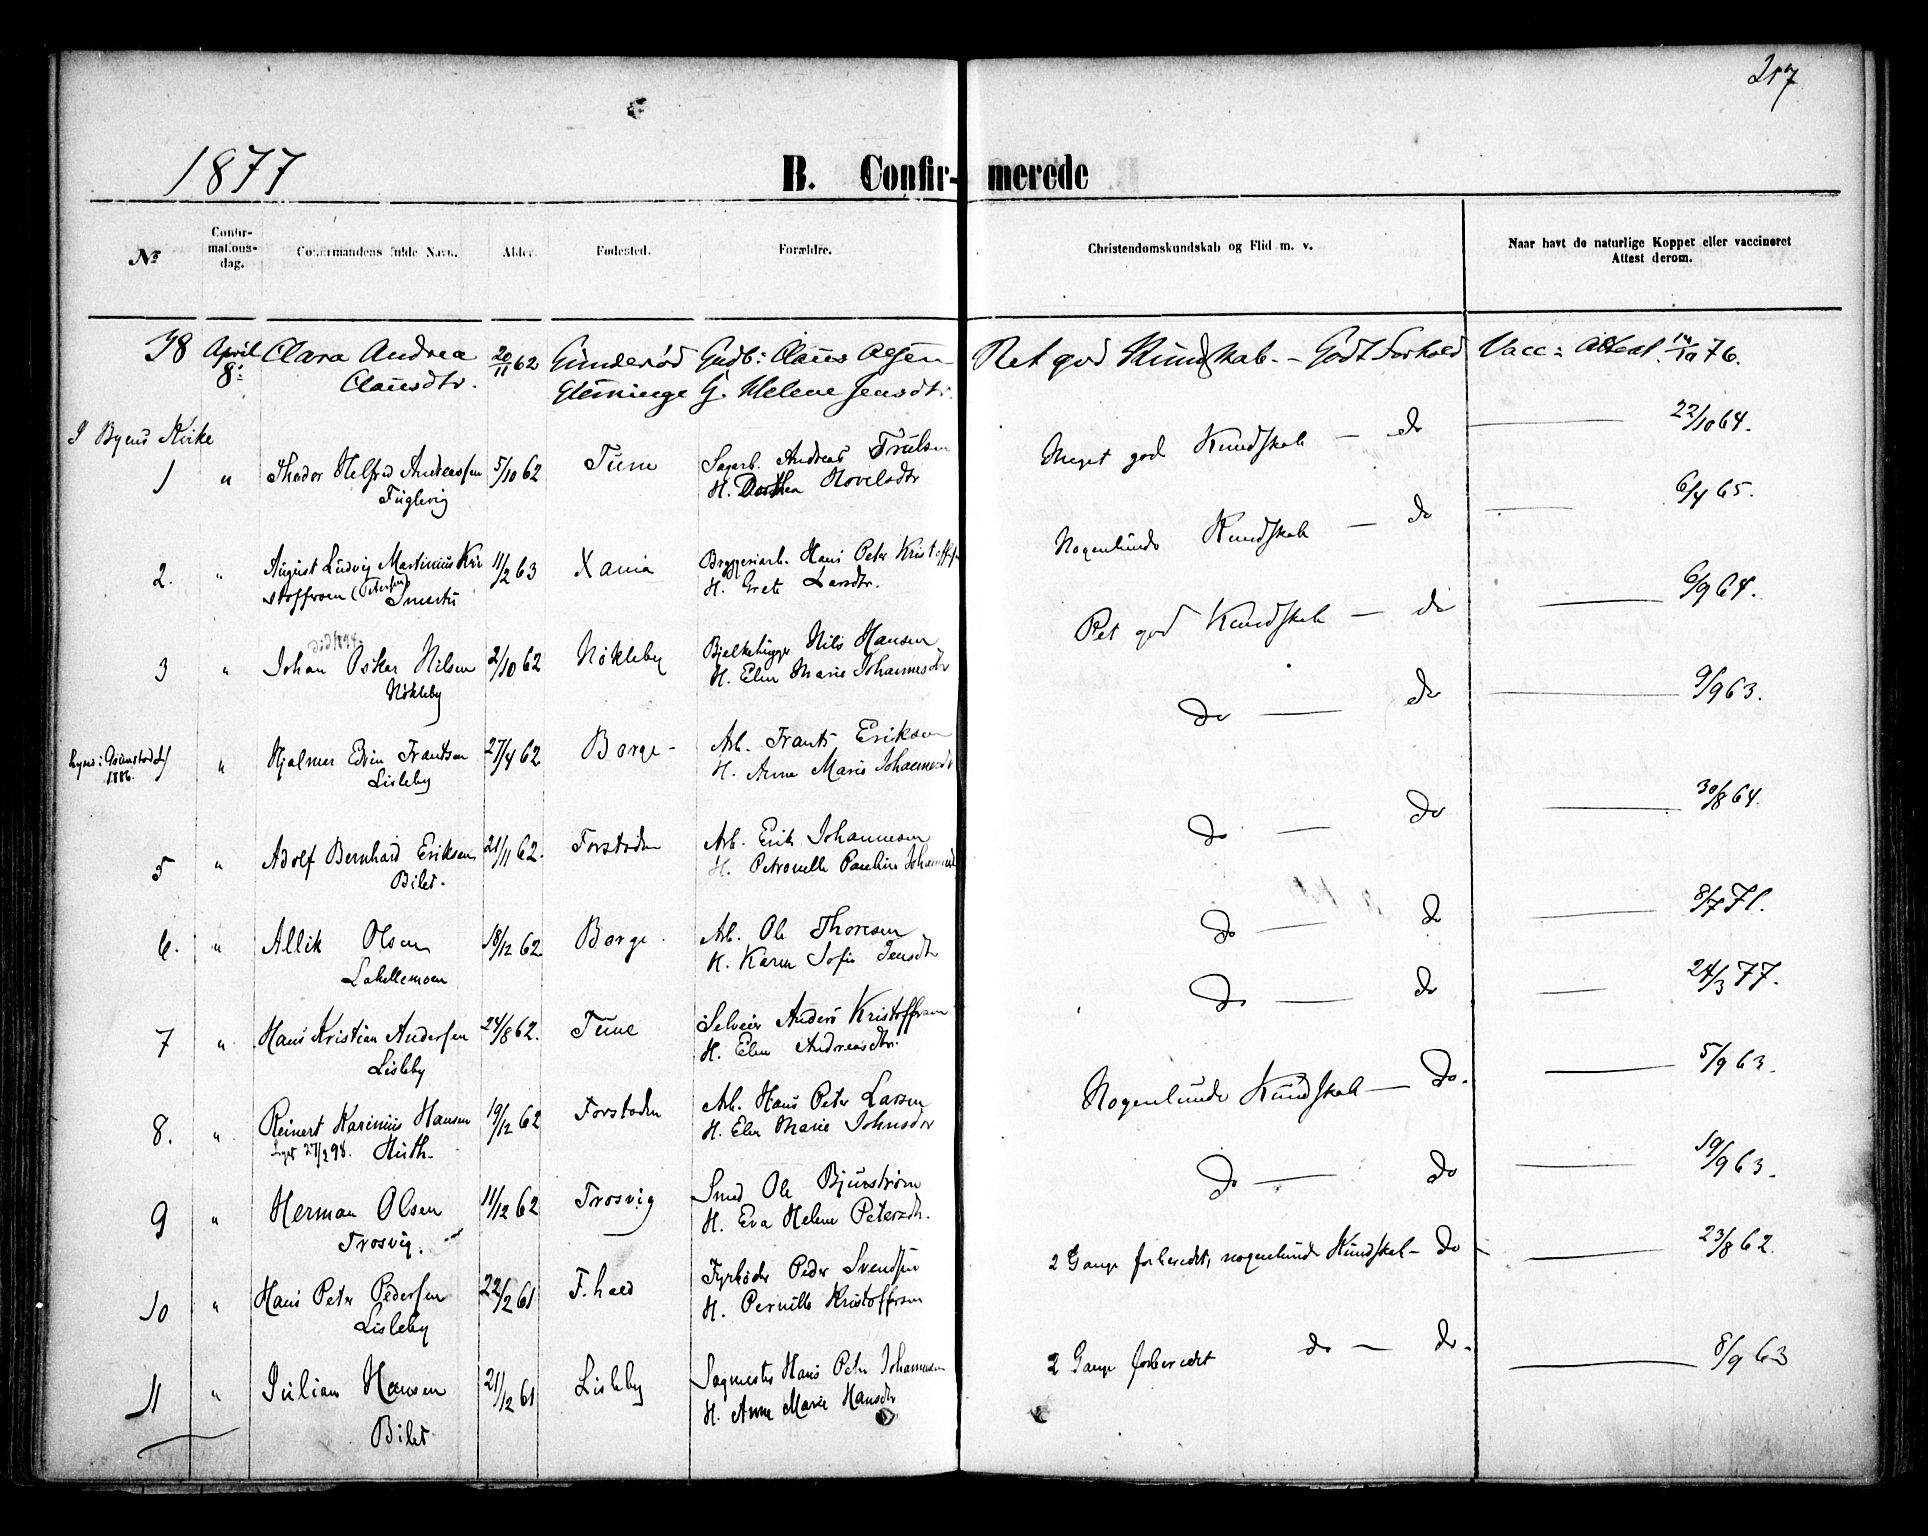 217
1877
B. Confir- merede
No
Confir-
mations-
dag.
Confirmandens fulde Navn.
Alder.
Fødested.
Forældre.
Christendomskundskab og Flid m. v.
Naar havt de naturlige Kopper eller vaccineret
Attest derom.
38 April Clara Andrea 20/11 62 Gunderød Gudb: Claus Olsen Ret god Kundskab. - Godt Forhold Vacc: Attest. 14/10 76.
8: Clausdtr. Glemminge G. Helene Jensdtr.
I Byens Kirke
1 " Thodor Helfred Andreassen 5/10 62 Tune Sagarb. Andreas Trulsen Meget god Kundskab — do — 22/10 64.
Fuglevig H. Dorthea Hovelsdtr
2. " August Ludvig Martinius Kri 11/2 63 Xania Bryggeriarb. Hans Peter Kristoffersen Nogenlunde Kundskab — do — 6/4 65.
stoffersen (Petersen) H. Grete Larsdtr.
død 1894.
3 " Johan Oskar Nilsen 2/10 62 Nökleby Bjelkehugger Nils Hansen Ret god Kundskab — do — 6/9 64.
Nökleby H. Elen Marie Johannesdtr
" Hjalmer Edvin Frantsen 27/4 62 Borge - Arb. Frants Eriksen do — do — 9/9 63.
1886. Lisleby H. Anne Marie Johannesdtr
5 " Adolf Bernhard Eriksen 21/11 62. Forstaden Arb. Erik Johannesen do — do — 30/8 64.
Bilet. H. Petronelle Pauline Johannesdt
6. " Allik Olsen 18/12 62. Borge. Arb. Ole Thoresen do — do — 8/7 71.
Lahellemoen H. Karen Sofie Jensdtr
7 " Hans Kristian Andersen 24/8 62. Tune Selveier Anders Kristoffersen do — do — 24/3 77.
Lisleby H. Elen Andreasdtr.
8. " Reinert Karinius Hansen 19/12 62 Forstaden Arb. Hans Peter Larsen Nogenlunde Kundskab — do. — 5/9 63.
27/2 98. H. Elen Marie Johnsdtr
9 " Herman Olsen 11/12 62 Trosvig Smed Ole Bjurström do — do — 19/9 63.
Trosvig. H. Eva Helene Petersdtr.
10 " Hans Peter Pedersen 22/2 61 F. hald Fyrböder Peder Svendsen 2 Gange forberedt, nogenlunde Kundskab - do — 23/8 62.
Lisleby H. Pernille Kristoffersen
11 " Julian Hansen 21/12 61 Lisleby Sagmester Hans Peter Johannesen 2 Gange forberedt do — do. — 8/9 63
Bilet H. Anne Marie Hansdtr